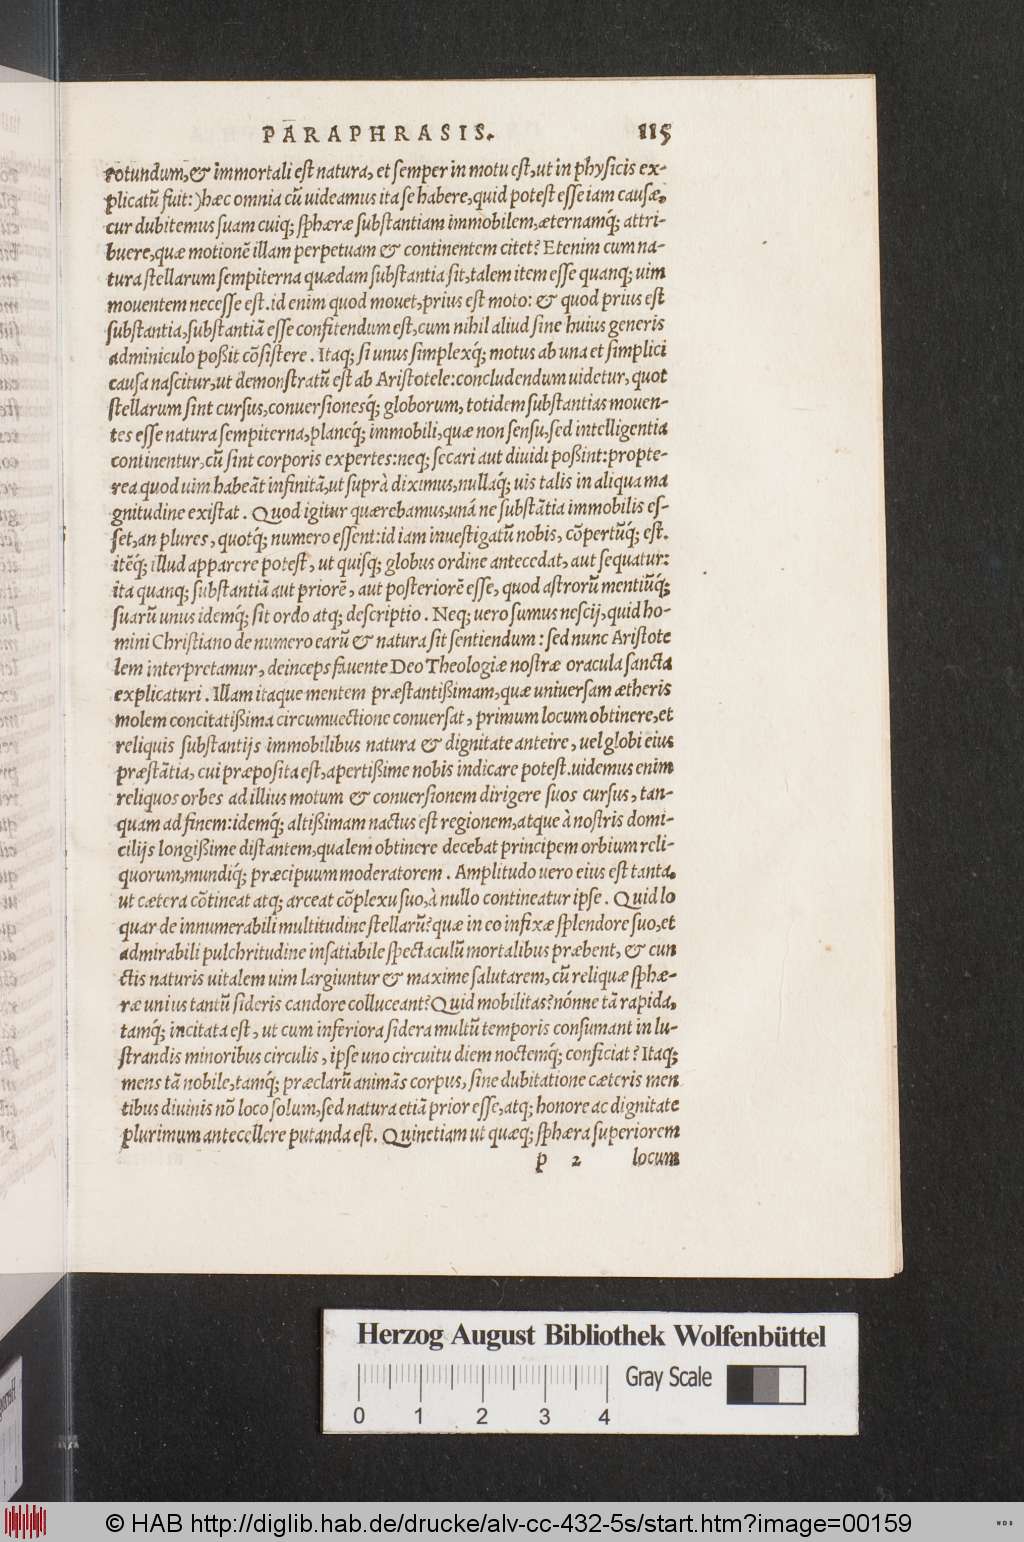 PARAPHRASIS. 115
rotundum, & immortali est natura, et semper in motu est, ut in physicis ex-
plicatũ fuit:) hæc omnia cũ uideamus ita se habere, quid potest esse iam causæ,
cur dubitemus suam cuiq; sphæræ substantiam immobilem, æternamq́; attri-
buere, quæ motionẽ illam perpetuam & continentem citet? Etenim cum na-
tura stellarum sempiterna quædam substantia sit, talem item esse quanq; uim
mouentem necesse est. id enim quod mouet, prius est moto: & quod prius est
substantia, substantiã esse confitendum est, cum nihil aliud sine huius generis
adminiculo poßit cõsistere. Itaq; si unus simplexq́; motus ab una et simplici
causa nascitur, ut demonstratũ est ab Aristotele: concludendum uidetur, quot
stellarum sint cursus, conuersionesq́; globorum, totidem substantias mouen-
tes esse natura sempiterna, planeq́; immobili, quæ non sensu, sed intelligentia
continentur, cũ sint corporis expertes: neq; secari aut diuidi poßint: propte-
rea quod uim habeãt infinitã, ut suprà diximus, nullaq́; uis talis in aliqua ma
gnitudine existat. Quod igitur quærebamus, unáne substãtia immobilis es-
set, an plures, quotq́; numero essent: id iam inuestigatũ nobis, cõpertũq́; est.
itẽq́; illud apparere potest, ut quisq; globus ordine antecedat, aut sequatur:
ita quanq; substantiã aut priorẽ, aut posteriorẽ esse, quod astrorũ mentiũq́;
suarũ unus idemq́; sit ordo atq; descriptio. Neq; uero sumus nescij, quid ho-
mini Christiano de numero earũ & natura sit sentiendum: sed nunc Aristote
lem interpretamur, deinceps fauente Deo Theologiæ nostræ oracula sancta
explicaturi. Illam itaque mentem præstantißimam, quæ uniuersam ætheris
molem concitatißima circumuectione conuersat, primum locum obtinere, et
reliquis substantijs immobilibus natura & dignitate anteire, uel globi eius
præstãtia, cui præposita est, apertißime nobis indicare potest. uidemus enim
reliquos orbes ad illius motum & conuersionem dirigere suos cursus, tan-
quam ad finem: idemq́; altißimam nactus est regionem, atque à nostris domi-
cilijs longißime distantem, qualem obtinere decebat principem orbium reli-
quorum, mundiq́; præcipuum moderatorem. Amplitudo uero eius est tanta,
ut cætera cõtineat atq; arceat cõplexu suo, à nullo contineatur ipse. Quid lo
quar de innumerabili multitudine stellarũ? quæ in eo infixæ splendore suo, et
admirabili pulchritudine insatiabile spectaculũ mortalibus præbent, & cun
ctis naturis uitalem uim largiuntur & maxime salutarem, cũ reliquæ sphæ-
ræ unius tantũ sideris candore colluceant? Quid mobilitas? nónne tã rapida,
tamq́; incitata est, ut cum inferiora sidera multũ temporis consumant in lu-
strandis minoribus circulis, ipse uno circuitu diem noctemq́; conficiat? Itaq;
mens tã nobile, tamq́; præclarũ animãs corpus, sine dubitatione cæteris men
tibus diuinis nõ loco solum, sed natura etiã prior esse, atq; honore ac dignitate
plurimum antecellere putanda est. Quinetiam ut quæq; sphæra superiorem
p 2 locum
Herzog August Bibliothek Wolfenbüttel
Gray Scale
0 1 2 3 4
© HAB http://diglib.hab.de/drucke/alv-cc-432-5s/start.htm?image=00159